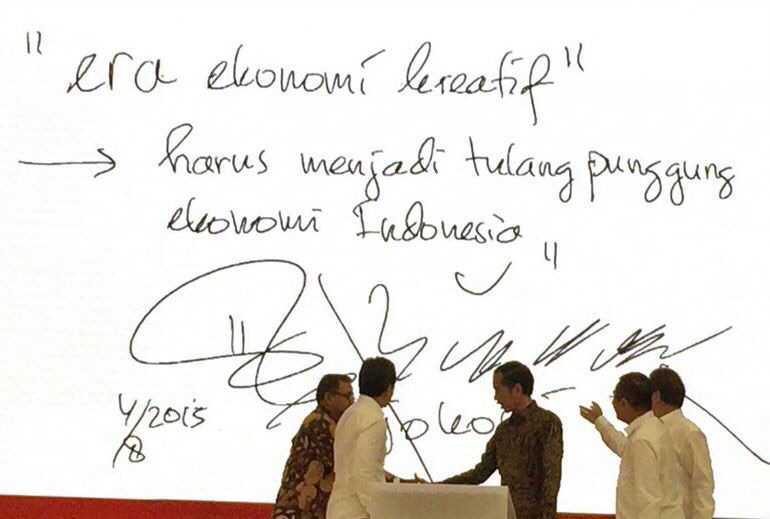 "era ekonomi kreatif"
→ harus menjadi tulang punggung
ekonomi Indonesia"
4/8 2015
Joko